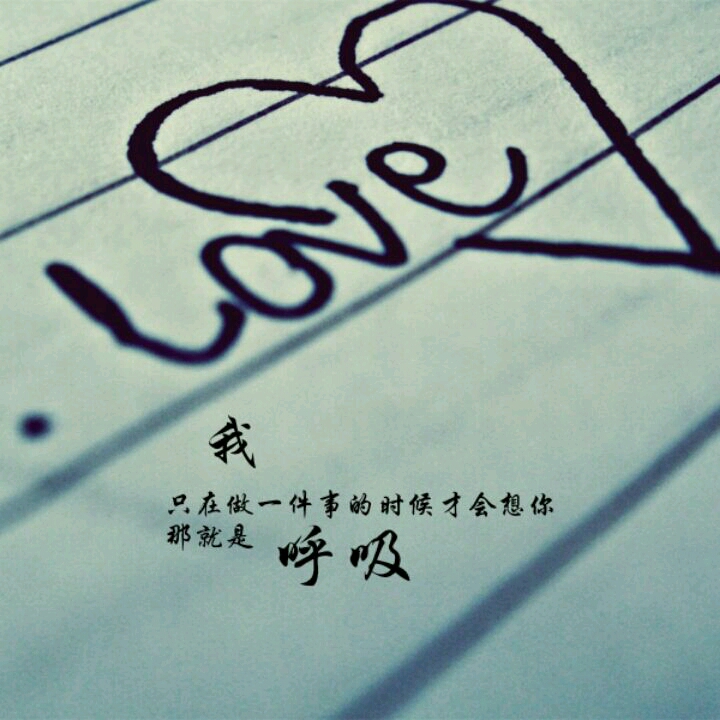 love
我
只在做一件事的时候才会想你
那就是 呼吸